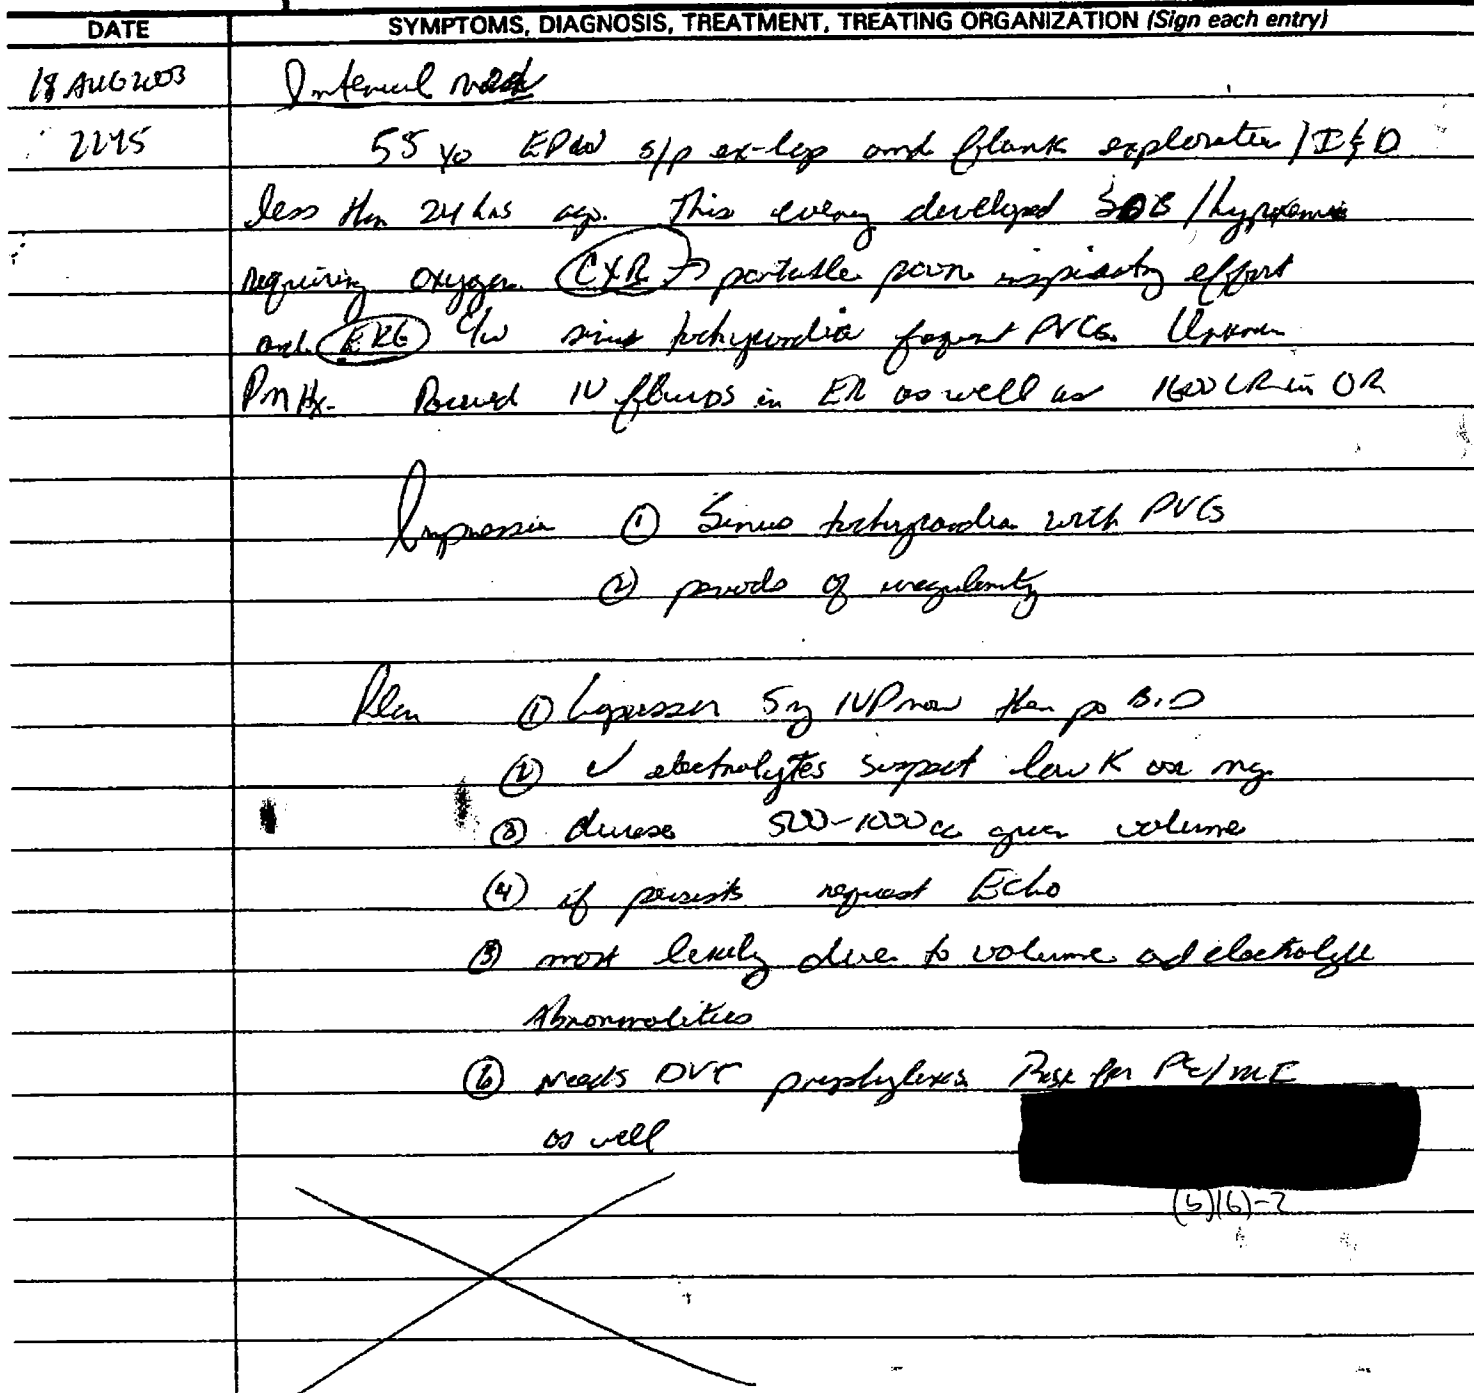 DATE SYMPTOMS, DIAGNOSIS, TREATMENT, TREATING ORGANIZATION (Sign each entry)
18 AUG 2003 Internal med
2245 55 yo EPW s/p ex-lap and flank exploration / I&D
less than 24 hrs ago. This evening developed SOB / hypoxemia
requiring oxygen. CXR → portable poor inspiratory effort
and EKG c/w sinus tachycardia frequent PVCs. Unknown
PMHx. Received IV fluids in ER as well as 1600 LR in OR
Impression ① Sinus tachycardia with PVCs
② periods of irregularity
Plan ① Lopressor 5mg IVP now then po B.I.D
② ✓ electrolytes suspect low K or mg
③ diurese 500-1000cc given volume
④ if persists request Echo
⑤ most likely due to volume and electrolyte
Abnormalities
⑥ needs DVT prophylaxis Risk for PE
as well
(b)(6)-2